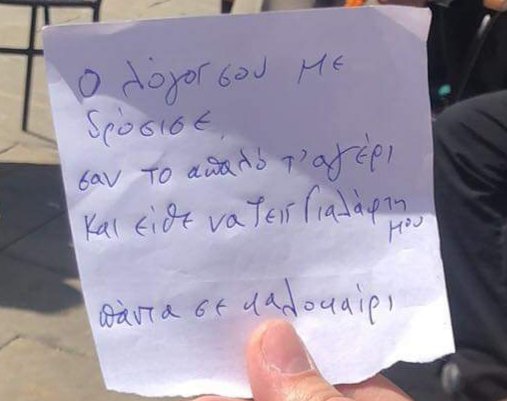 Ο λόγος σου με
δρόσισε,
σαν το απαλό τ' αγέρι
Και είθε να ζεις Γιαλάφτη
μου
πάντα σε καλοκαίρι